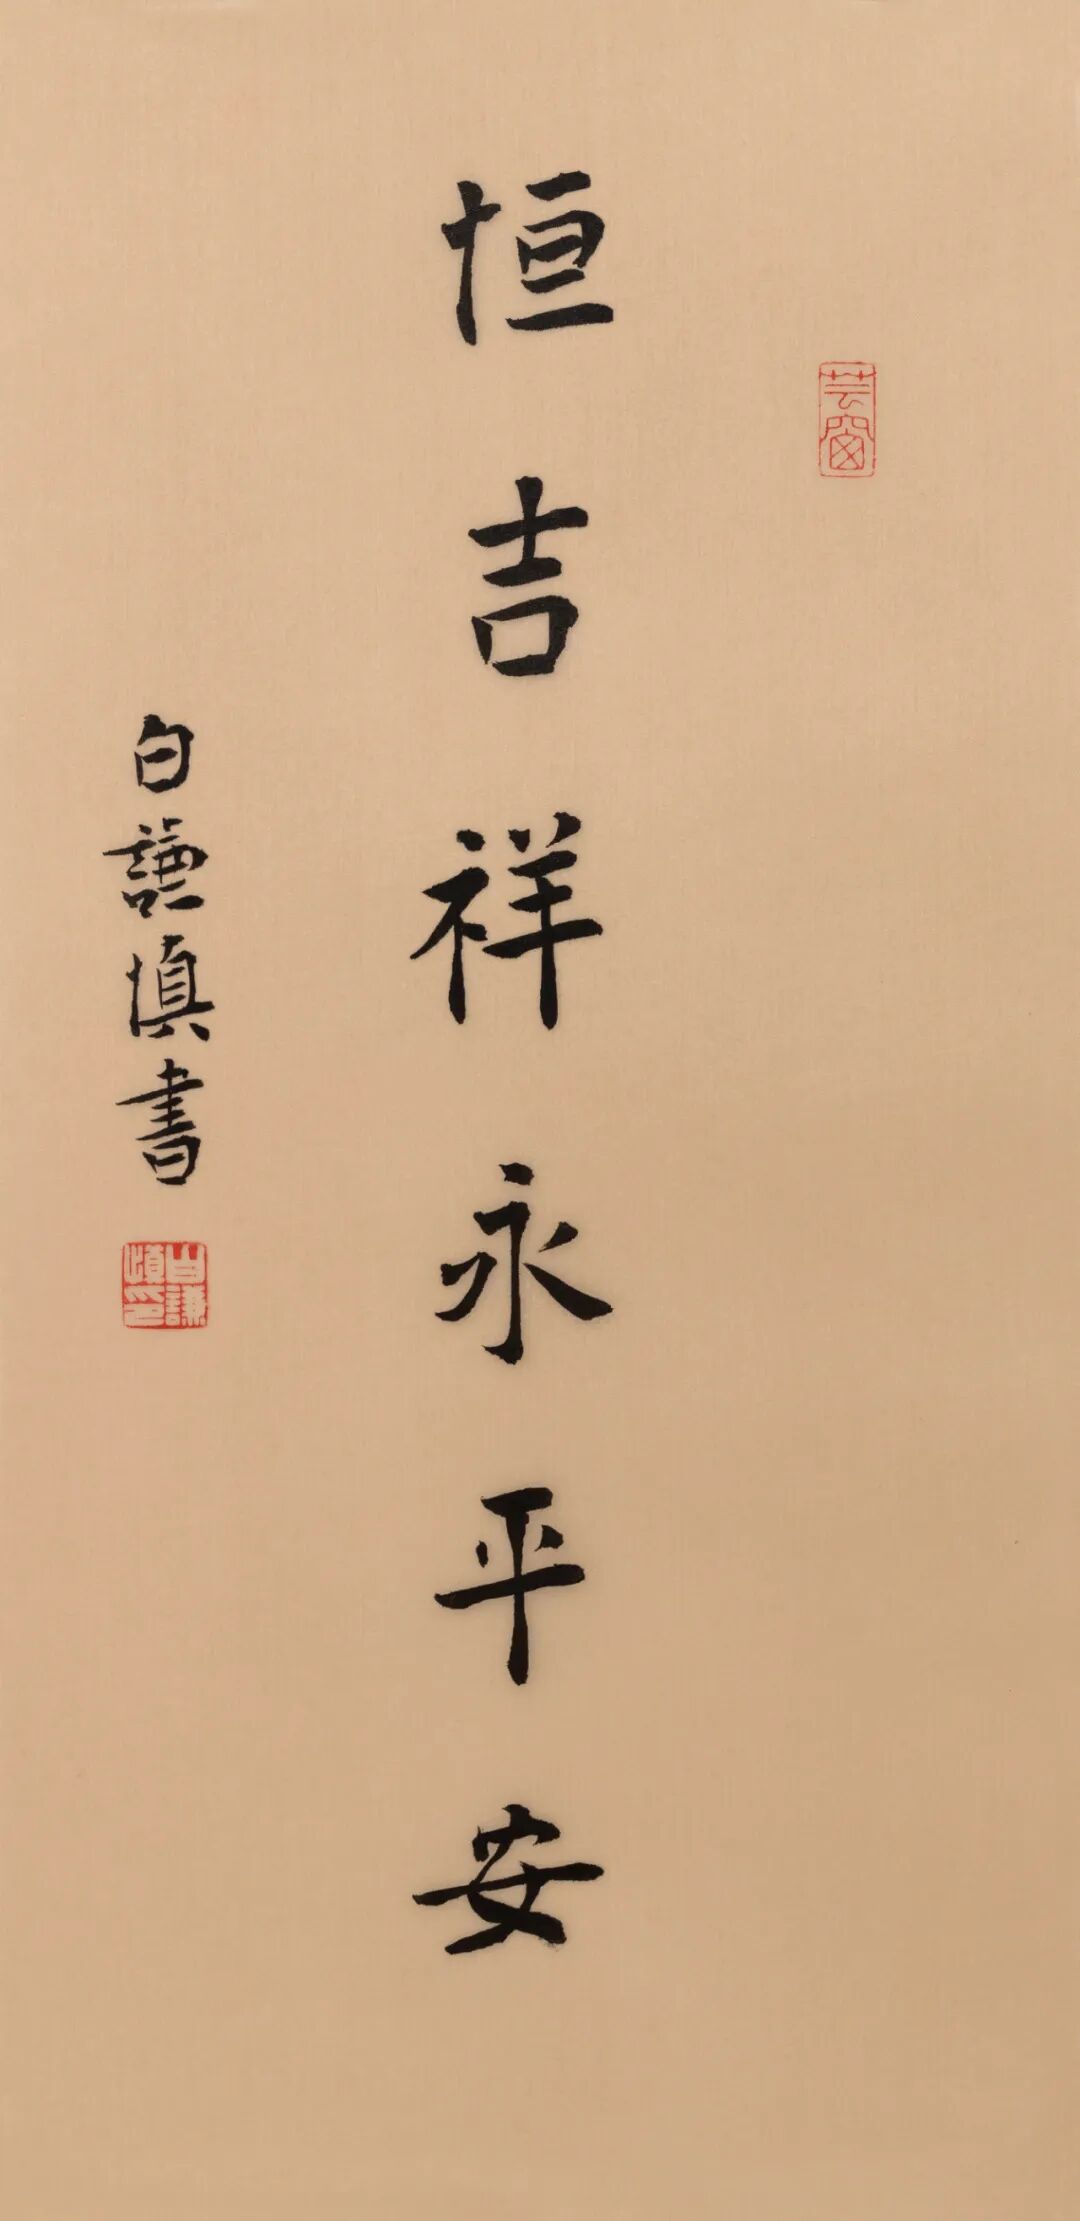 芸窗
恒吉祥永平安
白謙慎書
白謙慎印